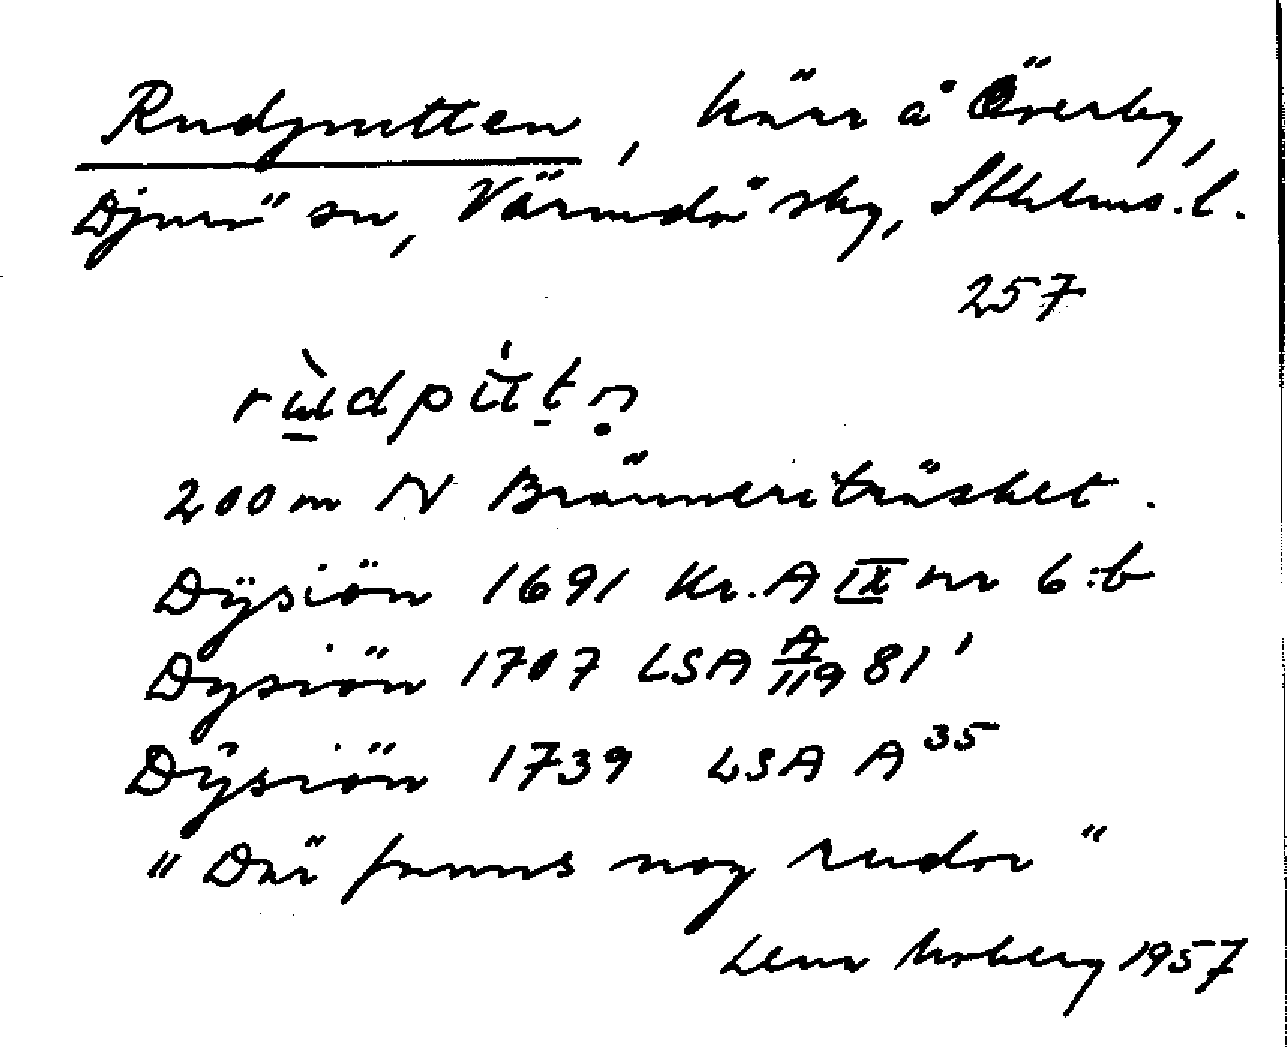 Rudputten, kärr å Överby,
Djurö sn, Värmdö skg, Sthlms. l.
257
rùdpút n
200 m N Bränneriträsket.
Dÿsiön 1691 Kr. A IX nr 6:b
Dysiön 1707 LSA A/119 81'
Dÿsiön 1739 LSA A 35
"Där fanns nog rudor"
1957